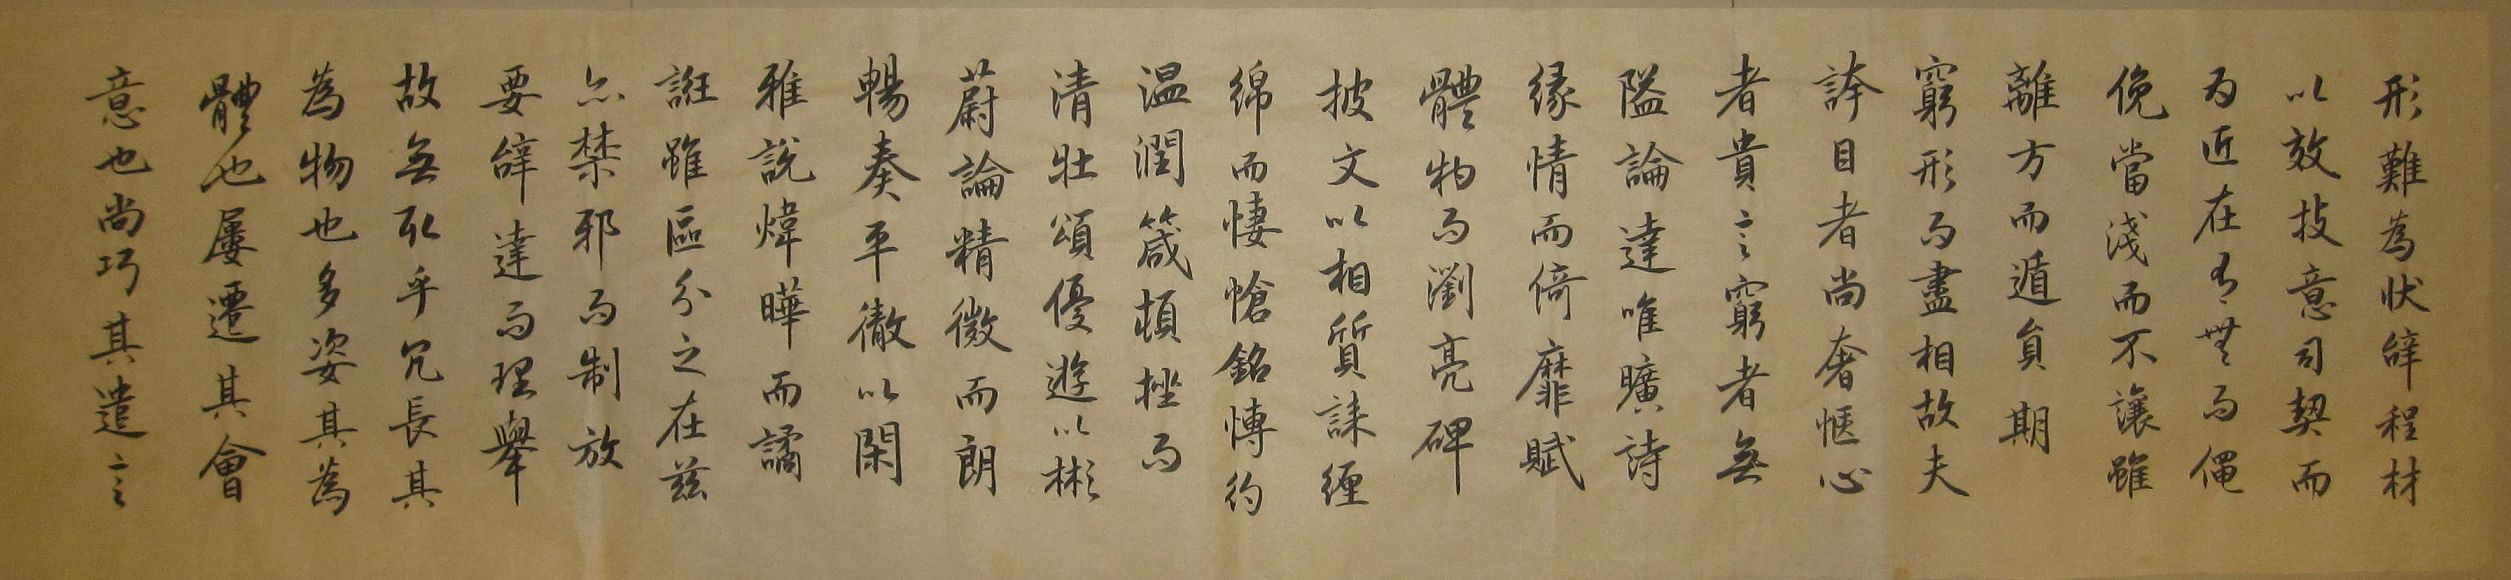 形難為狀辞程材
以效技意司契而
為近在有無而僶
俛當淺而不讓雖
離方而遁員期
窮形而盡相故夫
誇目者尚奢愜心
者貴言窮者無
隘論達唯曠詩
緣情而倚靡賦
體物而瀏亮碑
披文以相質誄纏
綿而悽愴銘博約
温潤箴頓挫而
清壯頌優遊以彬
蔚論精微而朗
暢奏平徹以閑
雅說煒曄而譎
誑雖區分之在茲
亦禁邪而制放
要辞達而理舉
故無取乎冗長其
為物也多姿其為
體也屢遷其會
意也尚巧其遣言